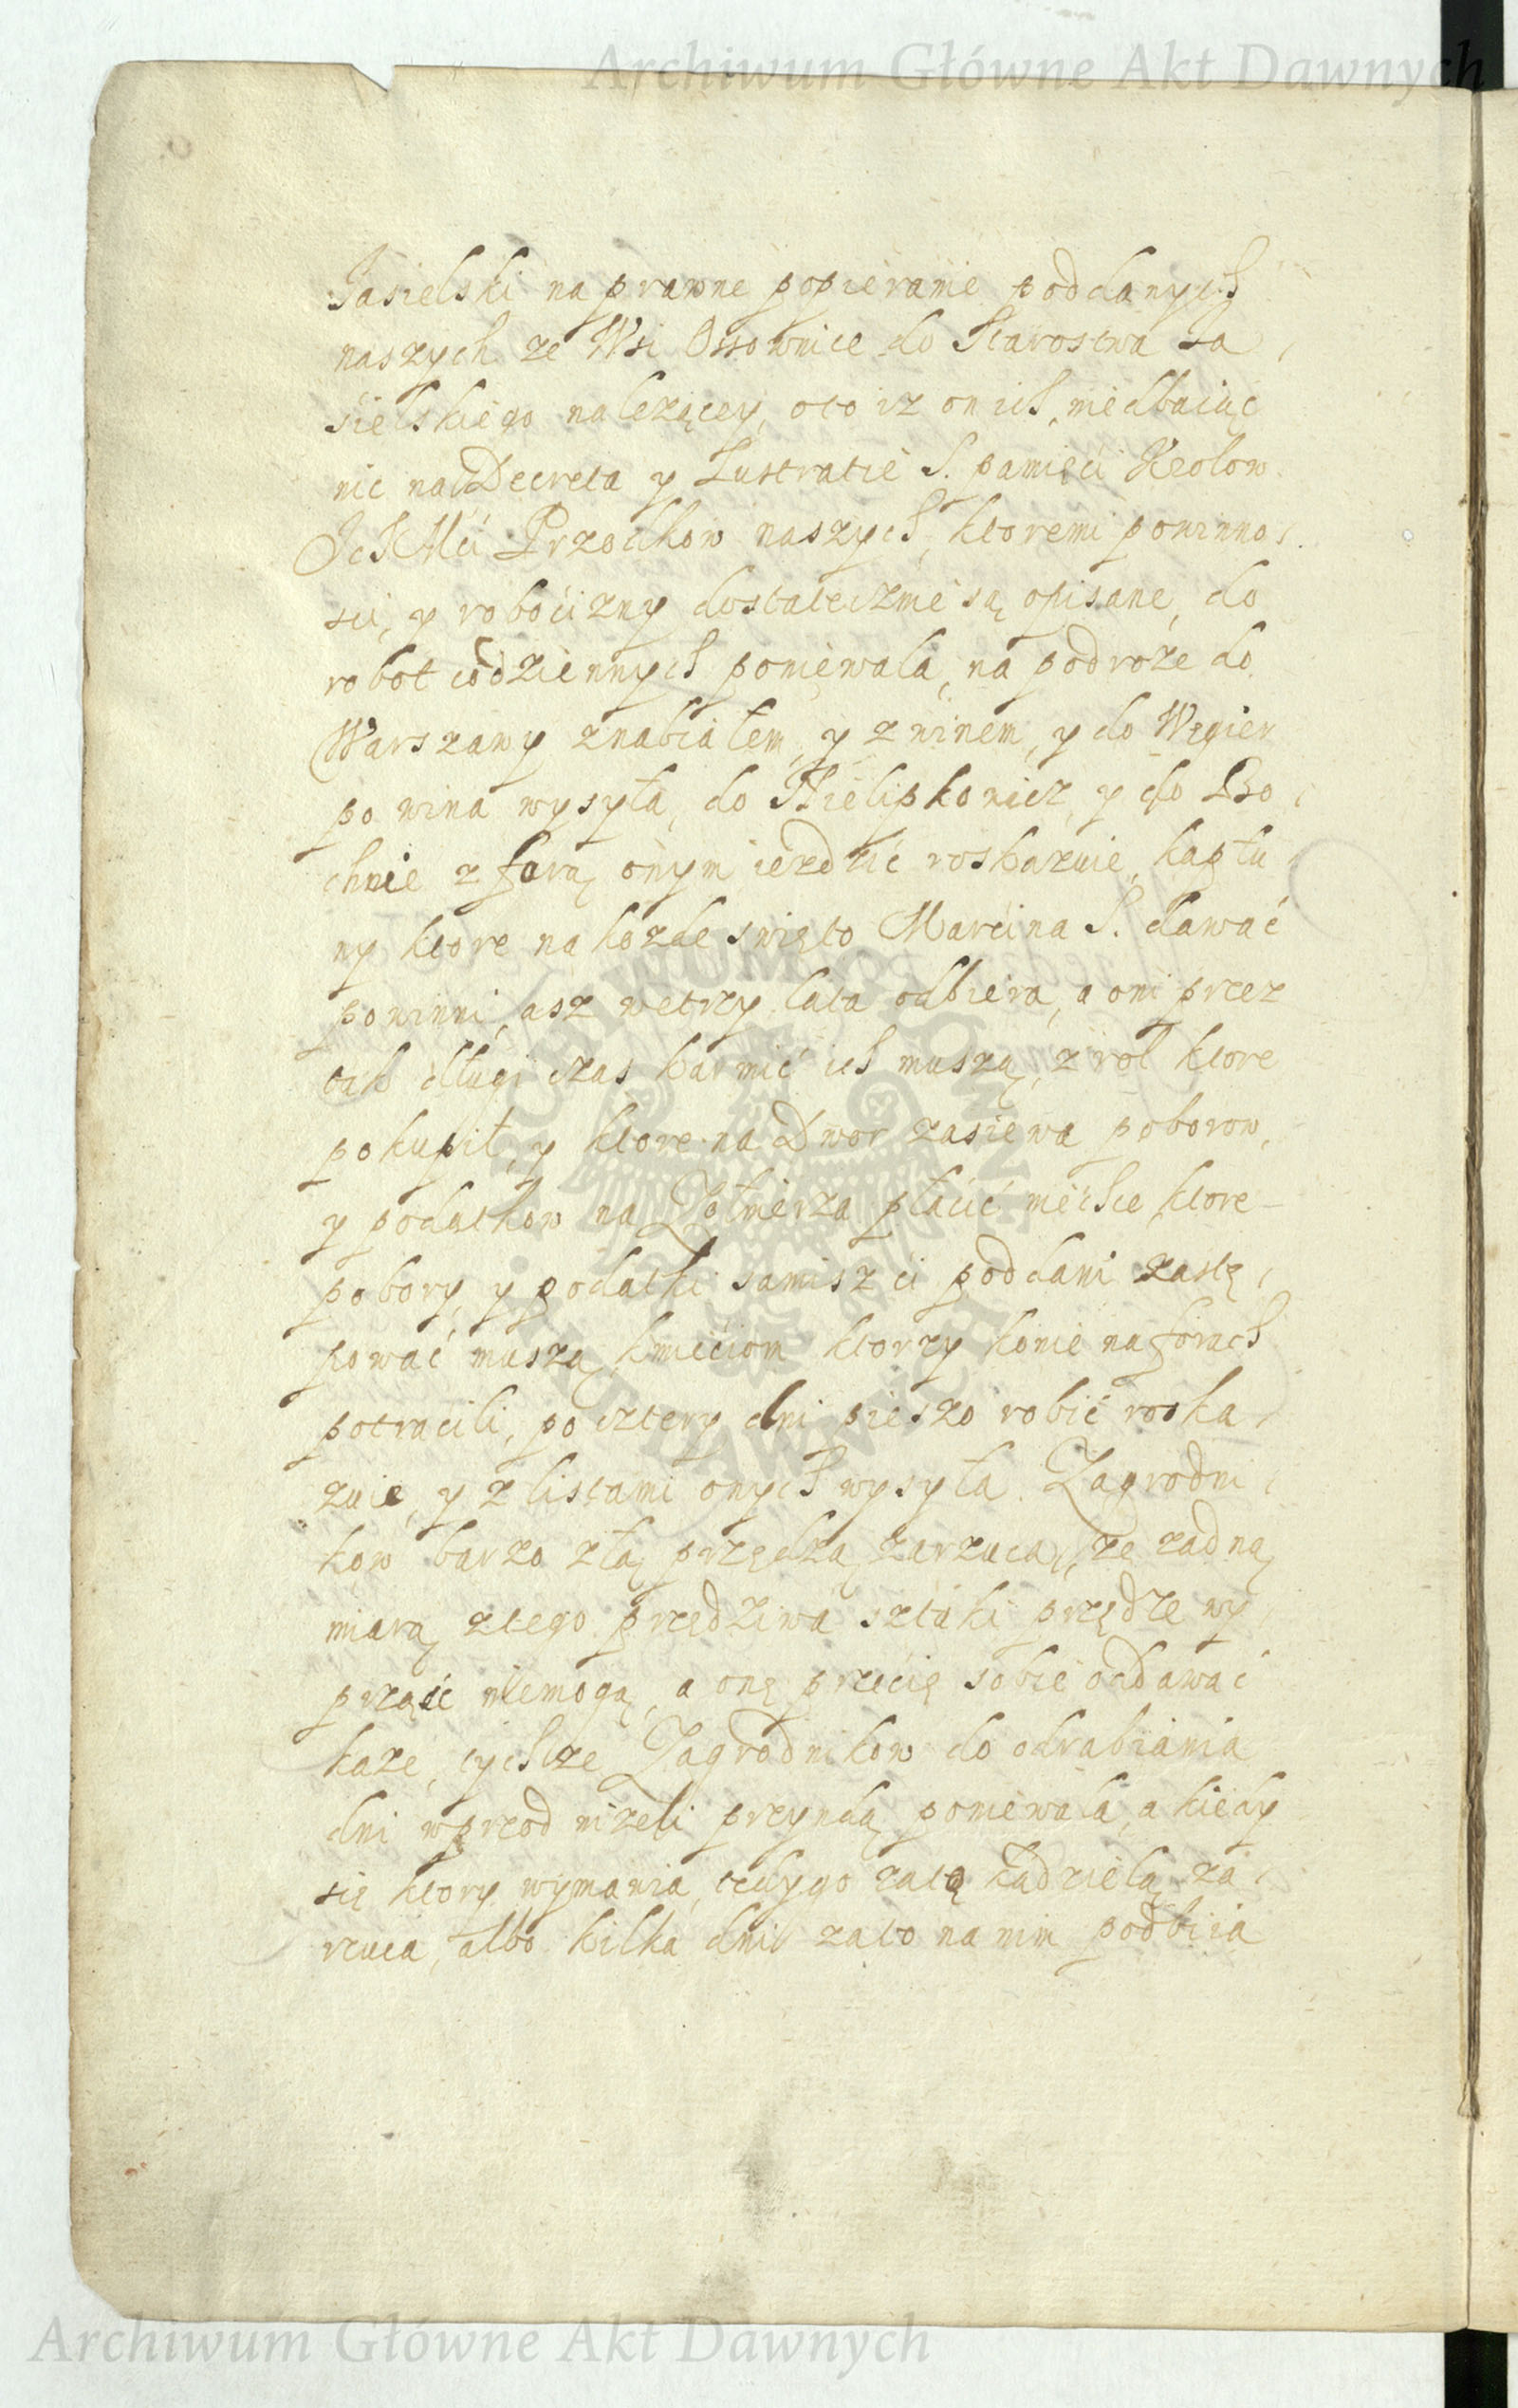 Archiwum Główne Akt Dawnych
Jasielski na prawne popieranie poddanych
naszych ze Wsi Ossownice do Starostwa Ja
sielskiego nalezącey, oto iz on ich, niedbaiąc
nic na Decreta y Lustratie S. pamięci Krolow
Ich Mci Przodkow naszych, ktoremi powinno
sci, y robocizny dostatecznie są opisane, do
robot codziennych poniewala, na podroże do
Warszawy z nabiałem, y z winem, y do Węgier
po wina wysyła, do Wielipkowicz, y do Bo
chnie z furą onym iezdzić roskazuie, kapłu
ny ktore na kozde swięto Marcina S. dawać
powinni, asz we trzy lata odbiera, a oni przez
tak długi czas karmić ich muszą, z rol ktore
pokupił, y ktore na Dwor zasiewa poborow,
y podatkow na Zołnierza płacić niechce, ktore
pobory, y podatki samisz ci poddani zastę
pować muszą, kmieciom ktorzy konie na forach
potracili, po cztery dni pieszo robić roska
zuie, y z listami onych wysyła. Zagrodni
kow barzo złą przędzą zarzuca, ze zadną
miarą z tego przędziwa sztuki przędze wy
prząść niemogą, a onę przecię sobie oddawać
kaze, tychze Zagrodnikow do odrabiania
dni wprzod nizeli przyndą poniewala, a kiedy
się ktory wymawia, tedy go zatą kądzielą za
rzuca, albo kilka dni zato na nim podbiia
ARCHIWUM GŁÓWNE AKT DAWNYCH
Archiwum Główne Akt Dawnych